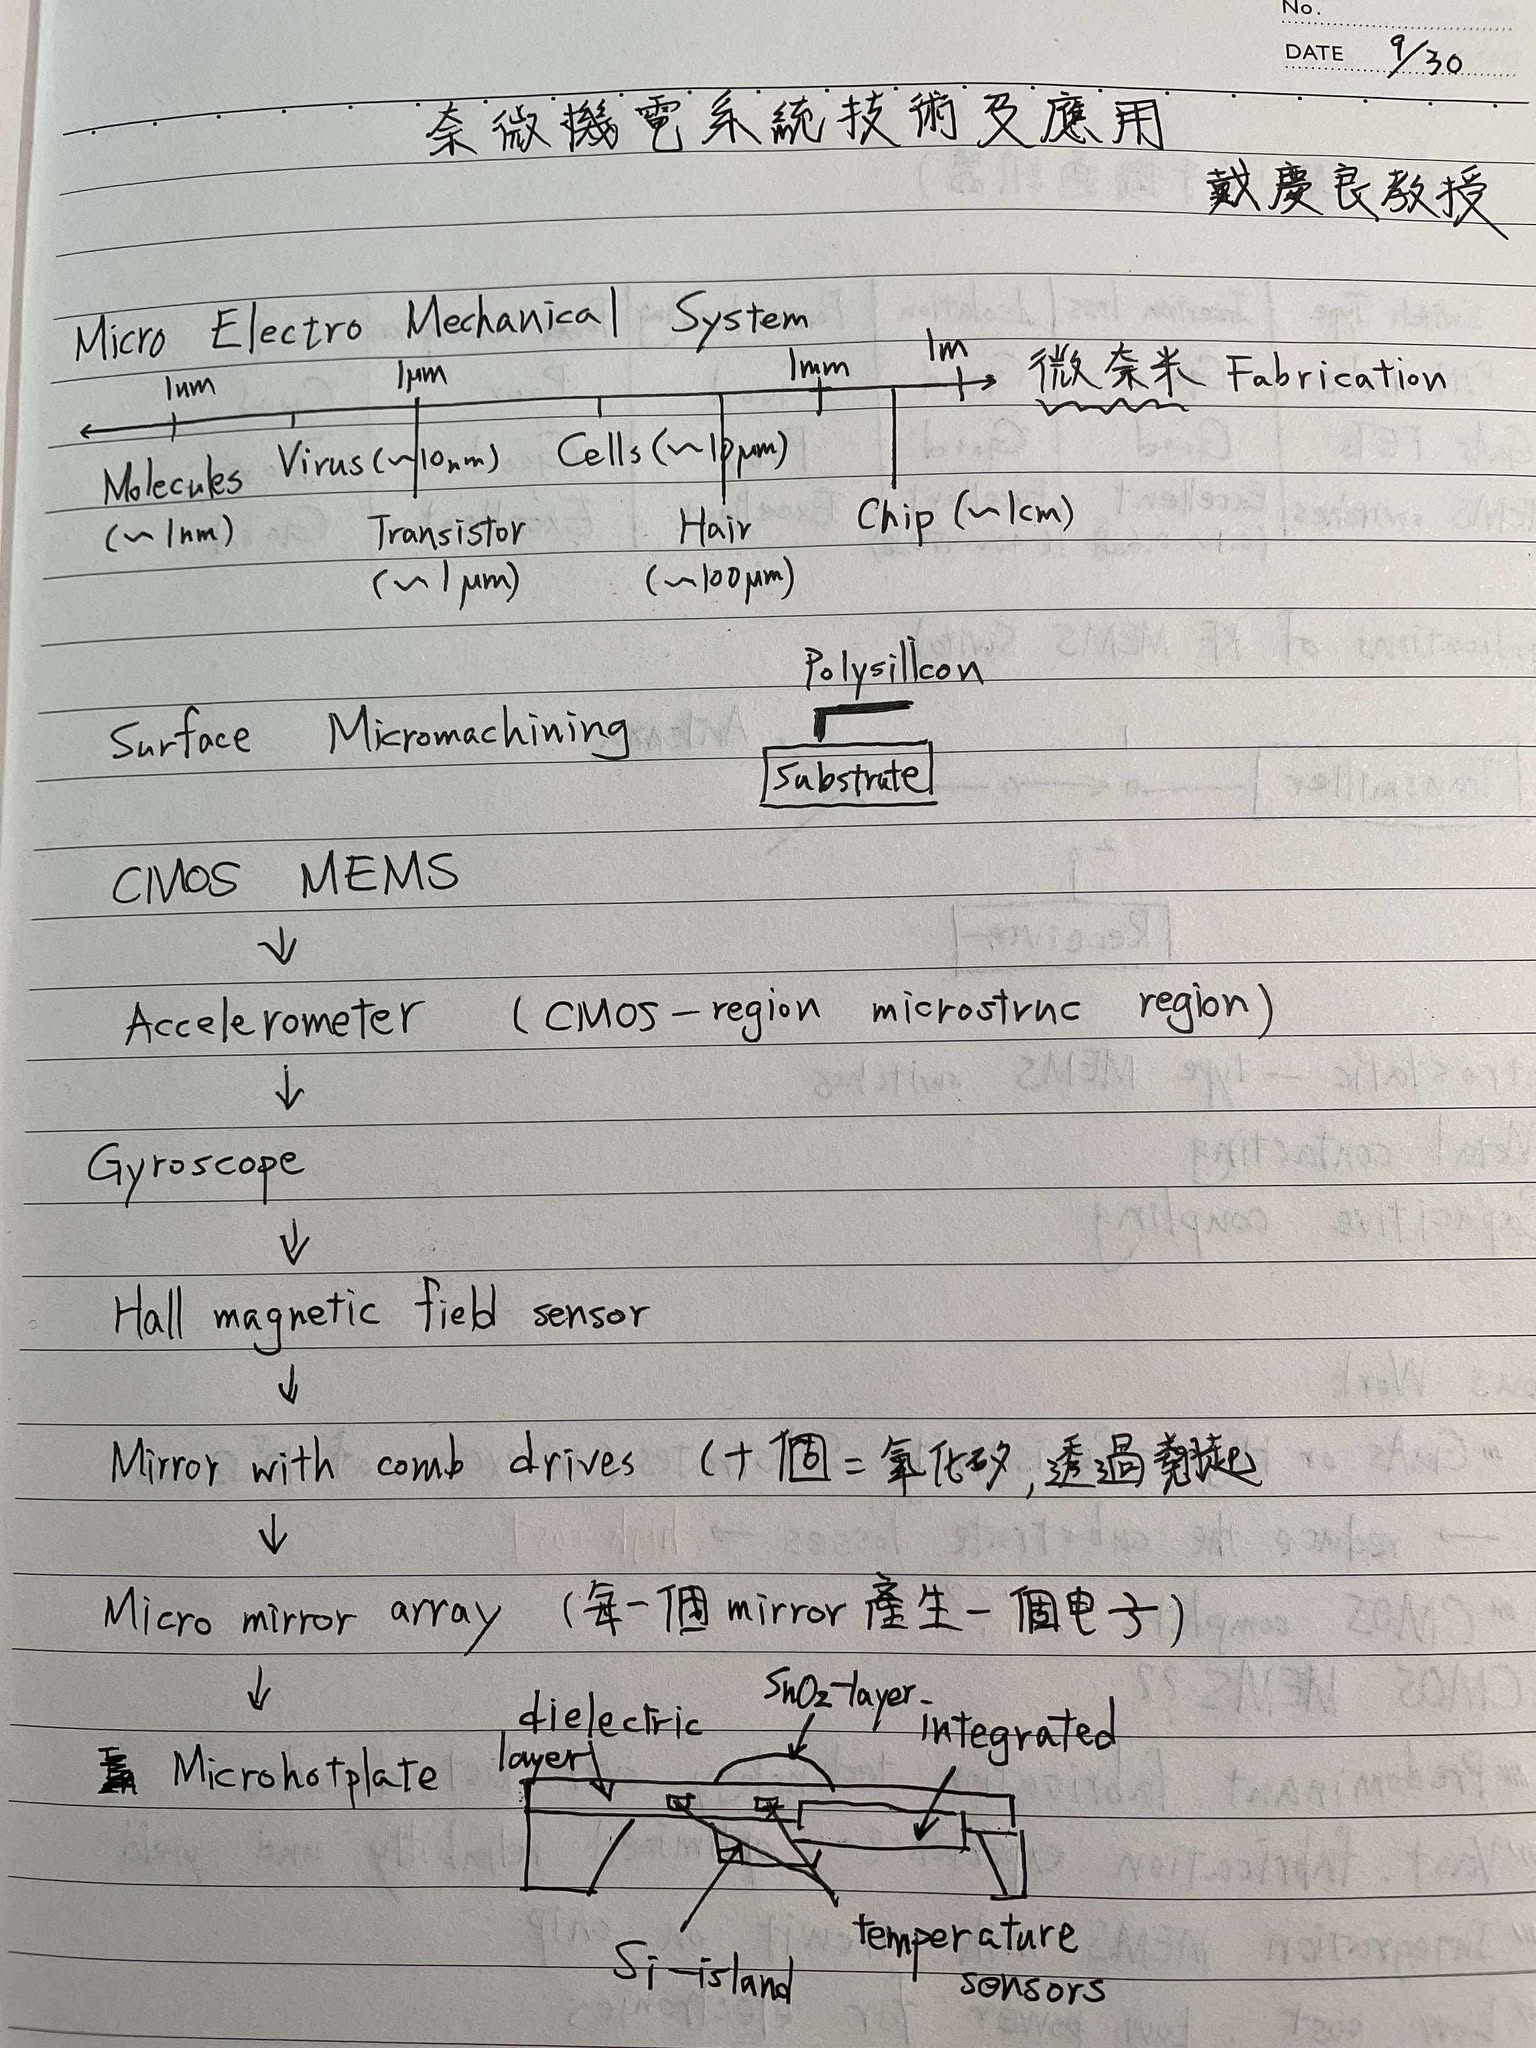 No.
DATE 9/30
奈微機電系統技術及應用
戴慶良教授
Micro Electro Mechanical System
1nm 1μm 1mm 1m 微奈米 Fabrication
Molecules (~1nm)
Virus (~10nm)
Transistor (~1μm)
Cells (~10μm)
Hair (~100μm)
Chip (~1cm)
Polysilicon
Surface Micromachining
Substrate
CMOS MEMS
↓
Accelerometer (CMOS-region microstruc region)
↓
Gyroscope
↓
Hall magnetic field sensor
↓
Mirror with comb drives (十個=氧化矽,透過翹起
↓
Micro mirror array (每一個mirror產生一個电子)
↓
Microhotplate
dielectric layer
SnO2-layer
integrated
Si-island
temperature sensors